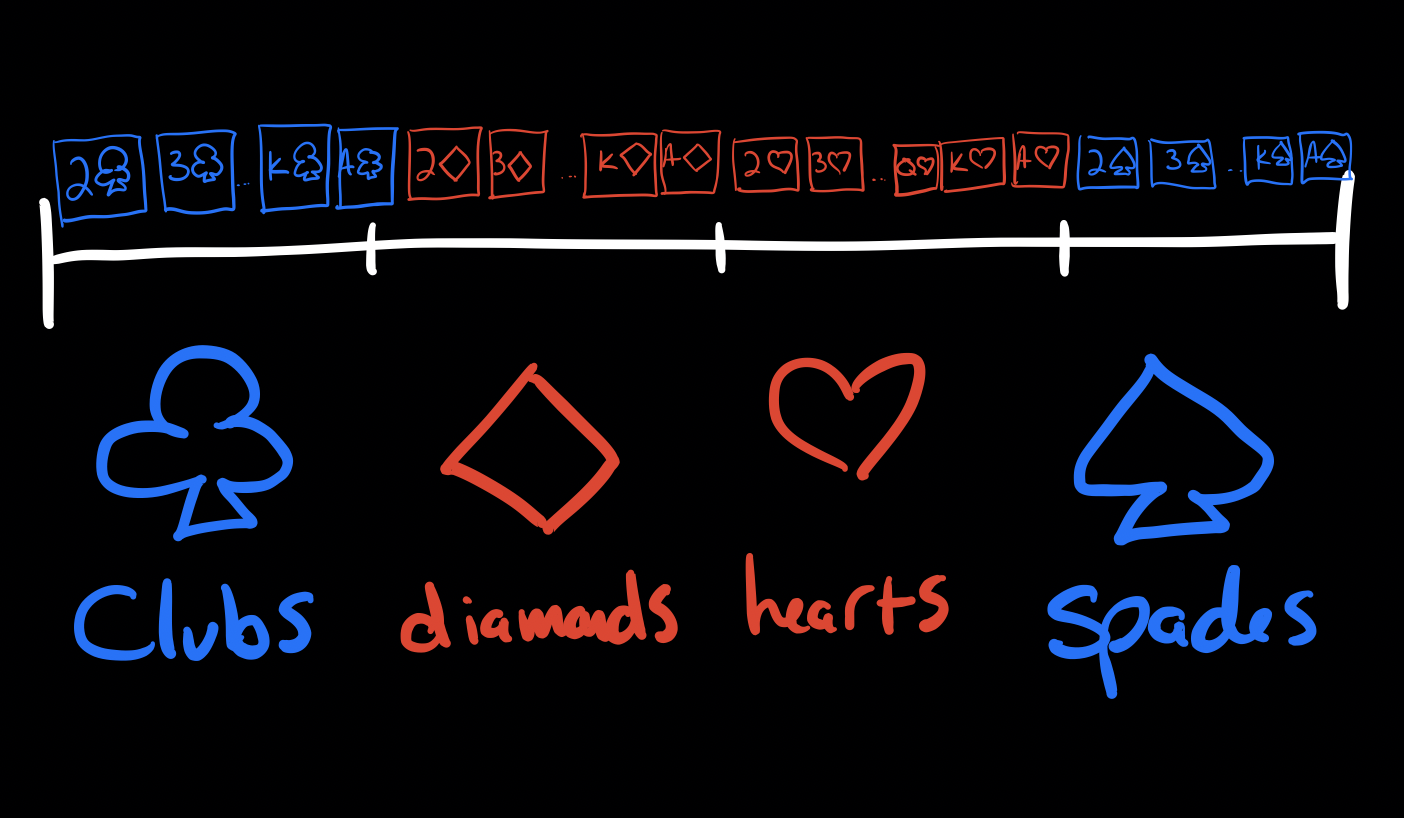 2♣ 3♣ ... K♣ A♣ 2♢ 3♢ ... K♢ A♢ 2♡ 3♡ ... Q♡ K♡ A♡ 2♠ 3♠ ... K♠ A♠
Clubs diamonds hearts Spades